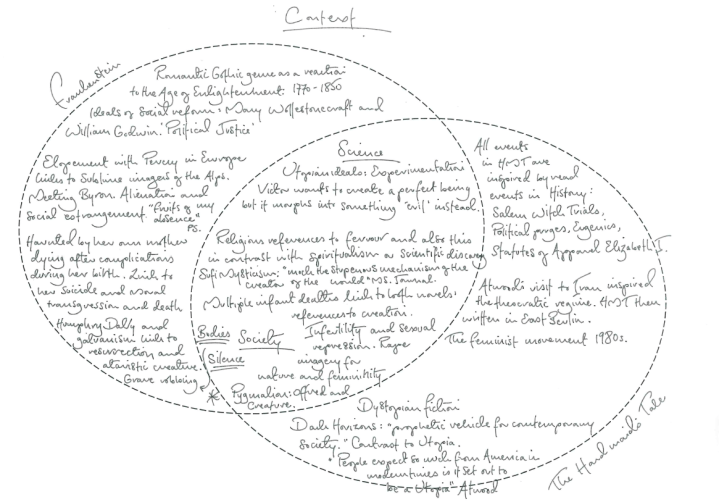 Context
Frankenstein
Romantic Gothic genre as a reaction
to the Age of Enlightenment: 1770-1850
Ideals of Social reform: Mary Wollestonecraft and
William Godwin. 'Political Justice'
Elopement with Percey in Europe
links to Sublime imagery of the Alps.
Meeting Byron Alienation and
social estrangement "fruits of my
absence"
PS.
Haunted by her own mother
dying after complications
during her birth. Link to
her suicide and moral
transgression and death
Humphry Davy and
galvanism links to
resurrection and
creature.
Grave robbing
Science
Utopian ideals: Experimentation
Victor wants to create a perfect being
but it morphs into something 'evil' instead.
Religious references to fervour and also this
in contrast with spiritualism a Scientific discovery
Mysticism: "mock the stupendous mechanism of the
creator of the world" M.S. Journal.
Multiple infant deaths links to both novels'
references to creation.
Bodies Society
Silence
Infertility and Sexual
repression. Rape
imagery for
nature and femininity
* Pygmalion: Offred and
Creature.
All events
in HMT are
inspired by real
events in 'History:
Salem Witch Trials,
Political purges, Eugenics,
Statutes of Apparel Elizabeth I.
Atwood's visit to Iran inspired
the theocratic regime. HMT then
written in East Berlin.
The feminist movement 1980s.
Dystopian fiction
Dark Horizons: "prophetic vehicle for contemporary
society." Contrast to Utopia.
"People expect so much from America in
modern times is it set out to
be a Utopia" Atwood
The Handmaid's Tale